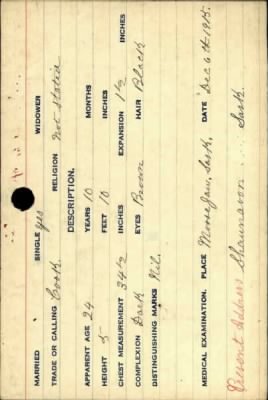 MARRIED SINGLE yes WIDOWER
TRADE OR CALLING Cook RELIGION Not Stated
DESCRIPTION.
APPARENT AGE 24 YEARS 10 MONTHS
HEIGHT 5 FEET 10 INCHES
CHEST MEASUREMENT 34½ INCHES EXPANSION 1½ INCHES
COMPLEXION Dark EYES Brown HAIR Black
DISTINGUISHING MARKS Nil.
MEDICAL EXAMINATION. PLACE Moose Jaw, Sask. DATE Dec 6th 1915.
Present Address Shaunavon Sask.